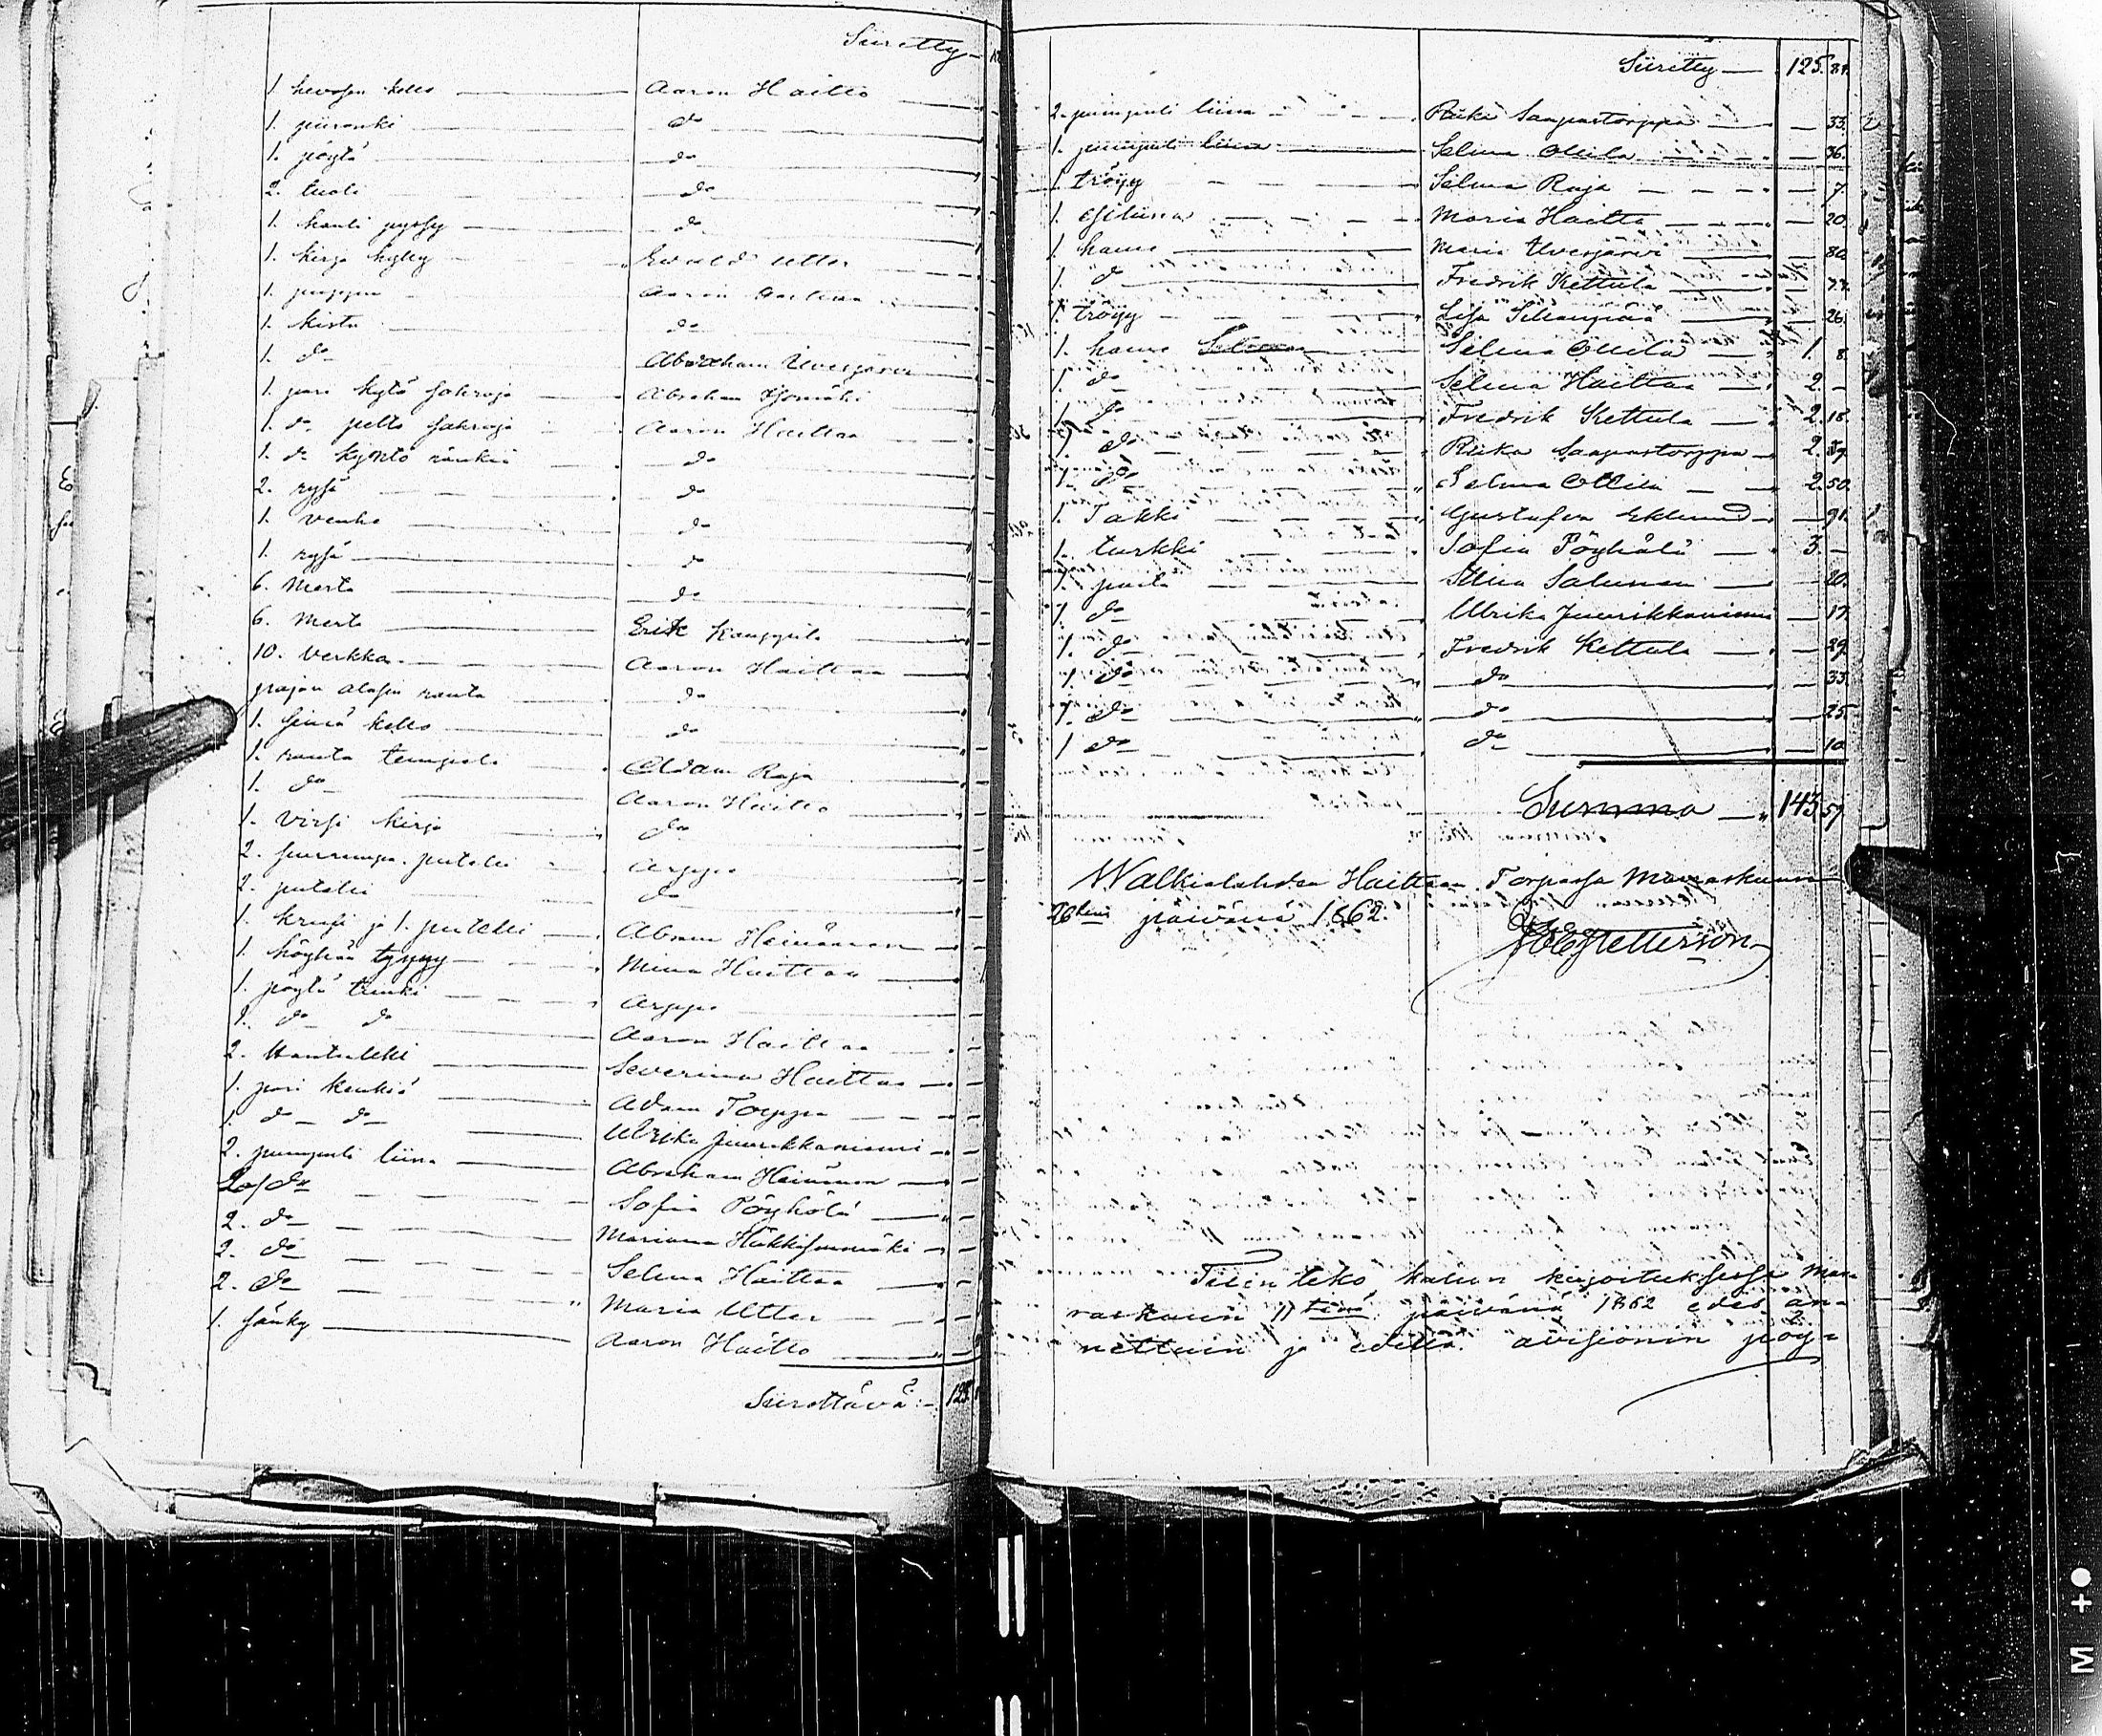 Siiretty
1. hevosen kello Aaron Haitto
1. piironki do
1. pöytä do
2. tuoli do
1. hauli pyssy do
1. kirja hylly Evald Utter
1. Aaron Haittaa
1. kistu do
1. do Abraham Uvesjärvi
1. pari kytö sahroja Abraham Isomäki
1. do pelto sahroja Aaron Haittaa
1. do kyntö ränkiä do
2. rysä do
1. venhe do
1. rysä do
6. Merta do
6. Merta Erik Kauppila
10. Verkko Aaron Haittaa
pajan alasin rauta do
1. seinä kello do
1. rauta tempeli Adam Raja
1. do Aaron Haitto
1. virsi kirja do
2. putelli Arppe
2. putelli do
1. kruusi ja 1. putelli Abram Heinänen
1. höyhän tyyny Mina Haittaa
1. pöytä truuki Arppe
1. do do Aaron Haittaa
2. Hantukki Severina Haittaa
1. pari kenkiä Adam Torppa
1. do do Ulrika Juurikkaniemi
2. pumpuli liina Abraham Heinänen
2 do Sofia Pöyhölä
2. do Mariana Hakkisenmäki
2. do Selma Haittaa
2. do Maria Utter
1. sänky Aaron Haitto
Siirettävä 125
Siiretty 125. 84.
2. pumpuli liina Riika Saapastorppa 33.
1. pumpuli liina Selma Ollila 36.
1. tröyy Selma Raja 7.
1. esiliina Maria Haitta 20.
1. hame Maria Uvesjärvi 80.
1. do Fredrik Kettula
1. tröyy Lisa Sillanpää 26.
1. hame Selma Ollila 1. 8.
1. do Selma Haittaa 2. -
1. do Fredrik Kettula 2. 18.
1. do Riika Saapastorppa 2.
1. do Selma Ollila 2. 50.
1. Takki Gustafva Eklund 91.
1. turkki Sofia Pöyhölä 3. -
1. paita Stiina Salunen 20.
1. do Ulrika Juurikkaniemi 17.
1. do Fredrik Kettula 29.
1. do do 33.
1. do do 25.
1 do do 10.
Summa 143 57
Walkialahden Haittaan Torpassa Marraskuun
26 päivänä 1862.
Petterson
Tilin teko kalun kirjoituksessa Mar-
raskuun 11 tenä päivänä 1862 edes an-
nettuin ja edellä avisionin pöy-